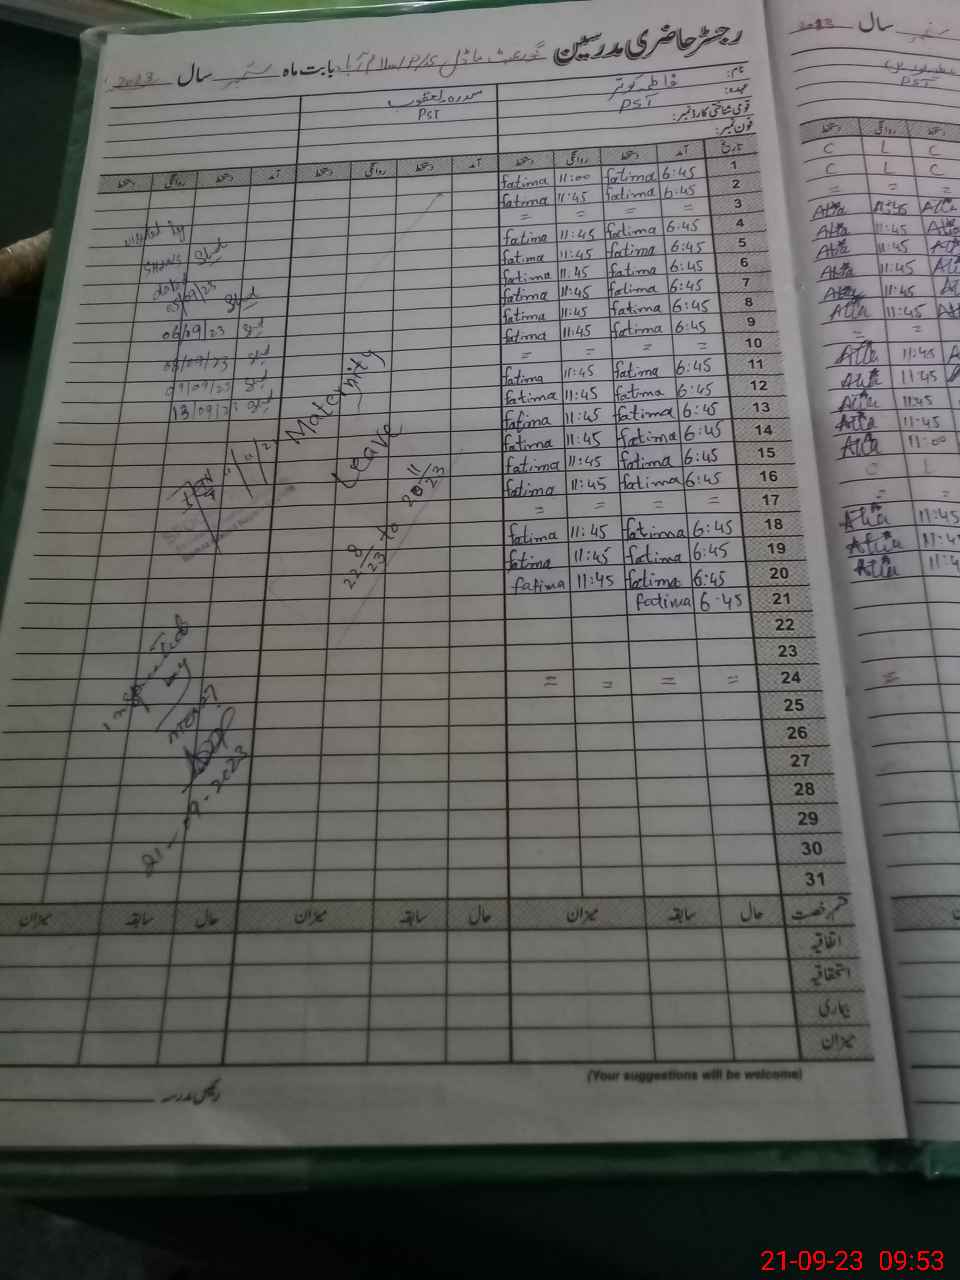 رجسٹر حاضری مدرسین گورنمنٹ ماڈل P/S اسلام آباد بابت ماہ ستمبر سال 2023
نام: فاطمہ کوثر
عہدہ: PST PST
قومی شناختی کارڈ نمبر:
فون نمبر:
تاریخ آمد دستخط روانگی دستخط آمد دستخط روانگی دستخط آمد دستخط روانگی دستخط
1 6:45 fatima 11:00 fatima
2 6:45 fatima 11:45 fatima
3 = = = =
4 6:45 fatima 11:45 fatima
5 6:45 fatima 11:45 fatima
6 6:45 fatima 11:45 fatima
7 6:45 fatima 11:45 fatima
8 6:45 fatima 11:45 fatima
9 6:45 fatima 11:45 fatima
10 = = = =
11 6:45 fatima 11:45 fatima
12 6:45 fatima 11:45 fatima
13 6:45 fatima 11:45 fatima
14 6:45 fatima 11:45 fatima
15 6:45 fatima 11:45 fatima
16 6:45 fatima 11:45 fatima
17 = = = =
18 6:45 fatima 11:45 fatima
19 6:45 fatima 11:45 fatima
20 6:45 fatima 11:45 fatima
21 6:45 fatima
22
23
24 = = = =
25
26
27
28
29
30
31
Maternity
Leave
22 8/23 to 20 11/23
visited by
date
05/09/23
06/09/23
13/09/23
by
21-09-2023
قسم رخصت حال سابقہ میزان حال سابقہ میزان حال سابقہ میزان
اتفاقیہ
استحقاقیہ
بیماری
میزان
(Your suggestions will be welcome)
رئیس مدرسہ
سال 2023
PST
دستخط روانگی دستخط
C L C
C L C
= = =
Atta 11:45 Atta
Atta 11:45
Atta 11:45
Atta 11:45
Atta 11:45
Atta 11:45
= =
Atta 11:45
Atta 11:45
Atta 11:45
Atta 11:45
Atta 11:00
C L
= =
Atta 11:45
Atta
Atta
=
21-09-23 09:53